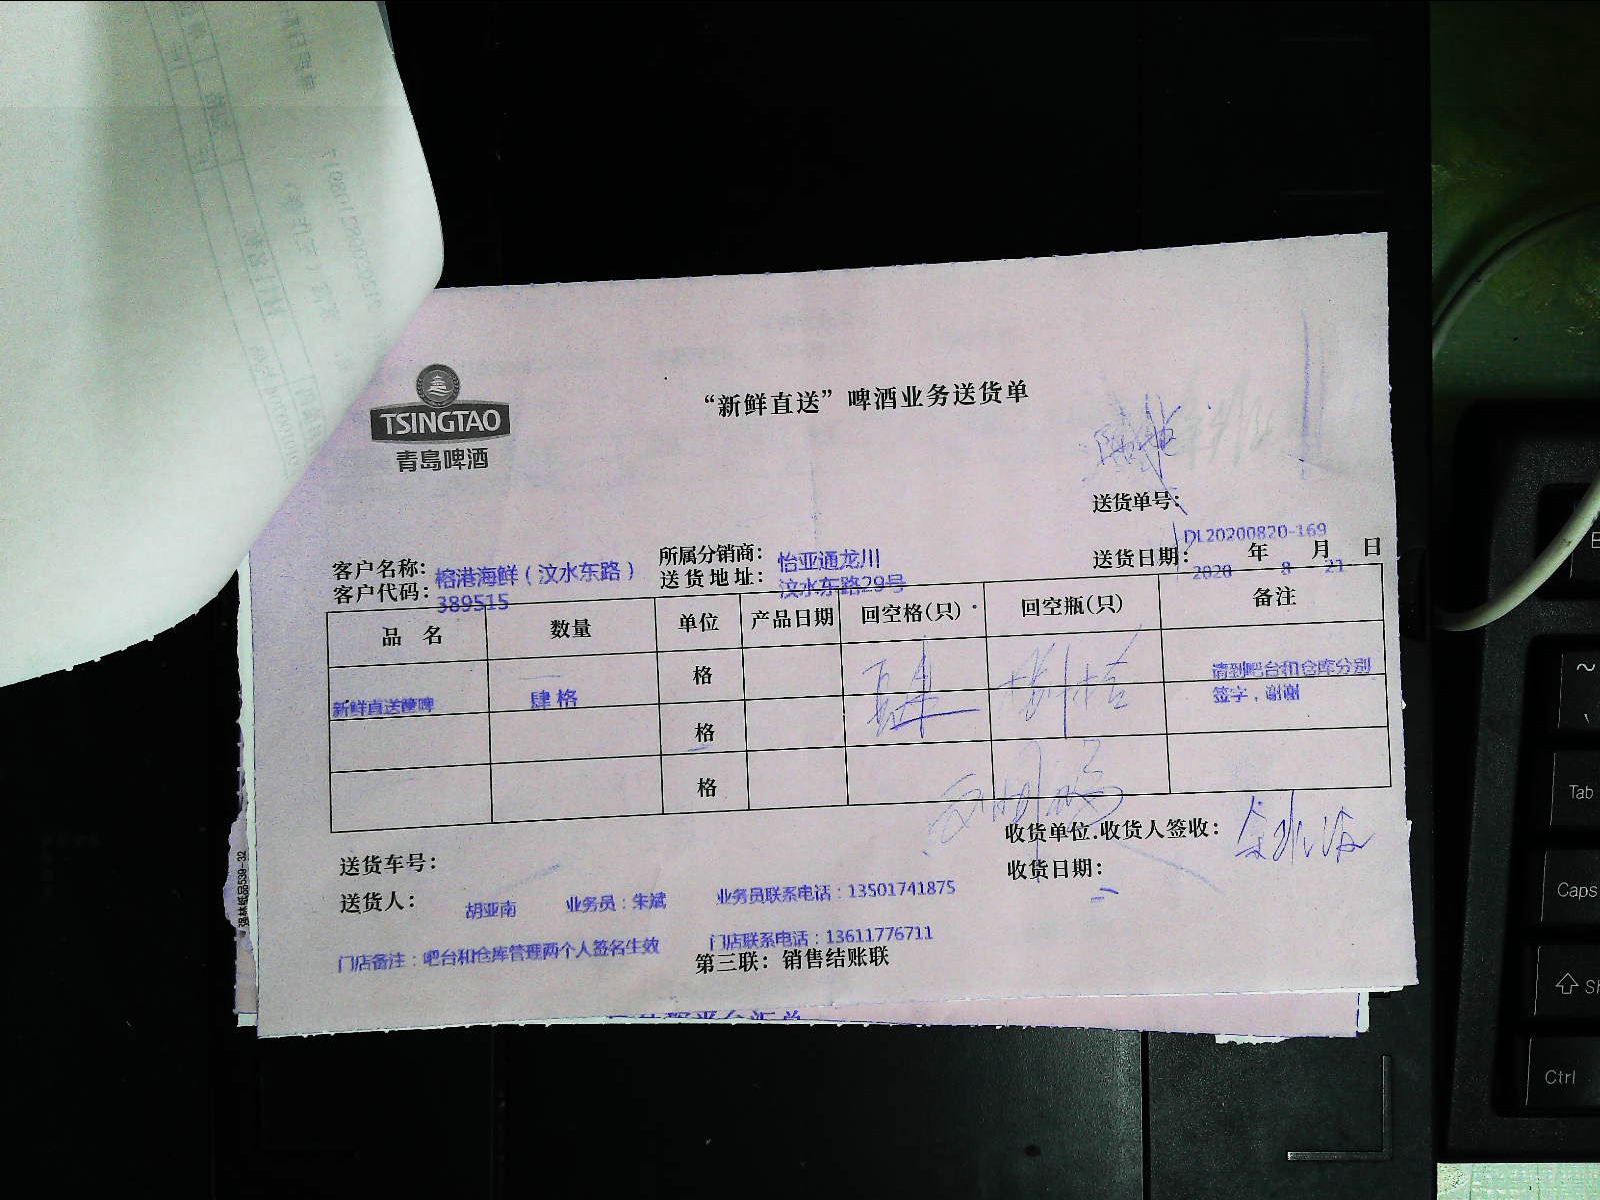 TSINGTAO
青岛啤酒
“新鲜直送”啤酒业务送货单
送货单号：
DL20200820-169
客户名称： 榕港海鲜（汶水东路）
所属分销商： 怡亚通龙川
送货日期： 2020 年 8 月 21 日
客户代码： 389515
送货地址： 汶水东路29号
品 名 数量 单位 产品日期 回空格(只) 回空瓶(只) 备注
新鲜直送篦啤 肆格 格 请到吧台和仓库分别
签字，谢谢
格
格
收货单位.收货人签收：
送货车号：
收货日期：
送货人： 胡亚南 业务员：朱斌 业务员联系电话：13501741875
门店备注：吧台和仓库管理两个人签名生效 门店联系电话：13611776711
第三联：销售结账联
~
Tab
Caps
Ctrl